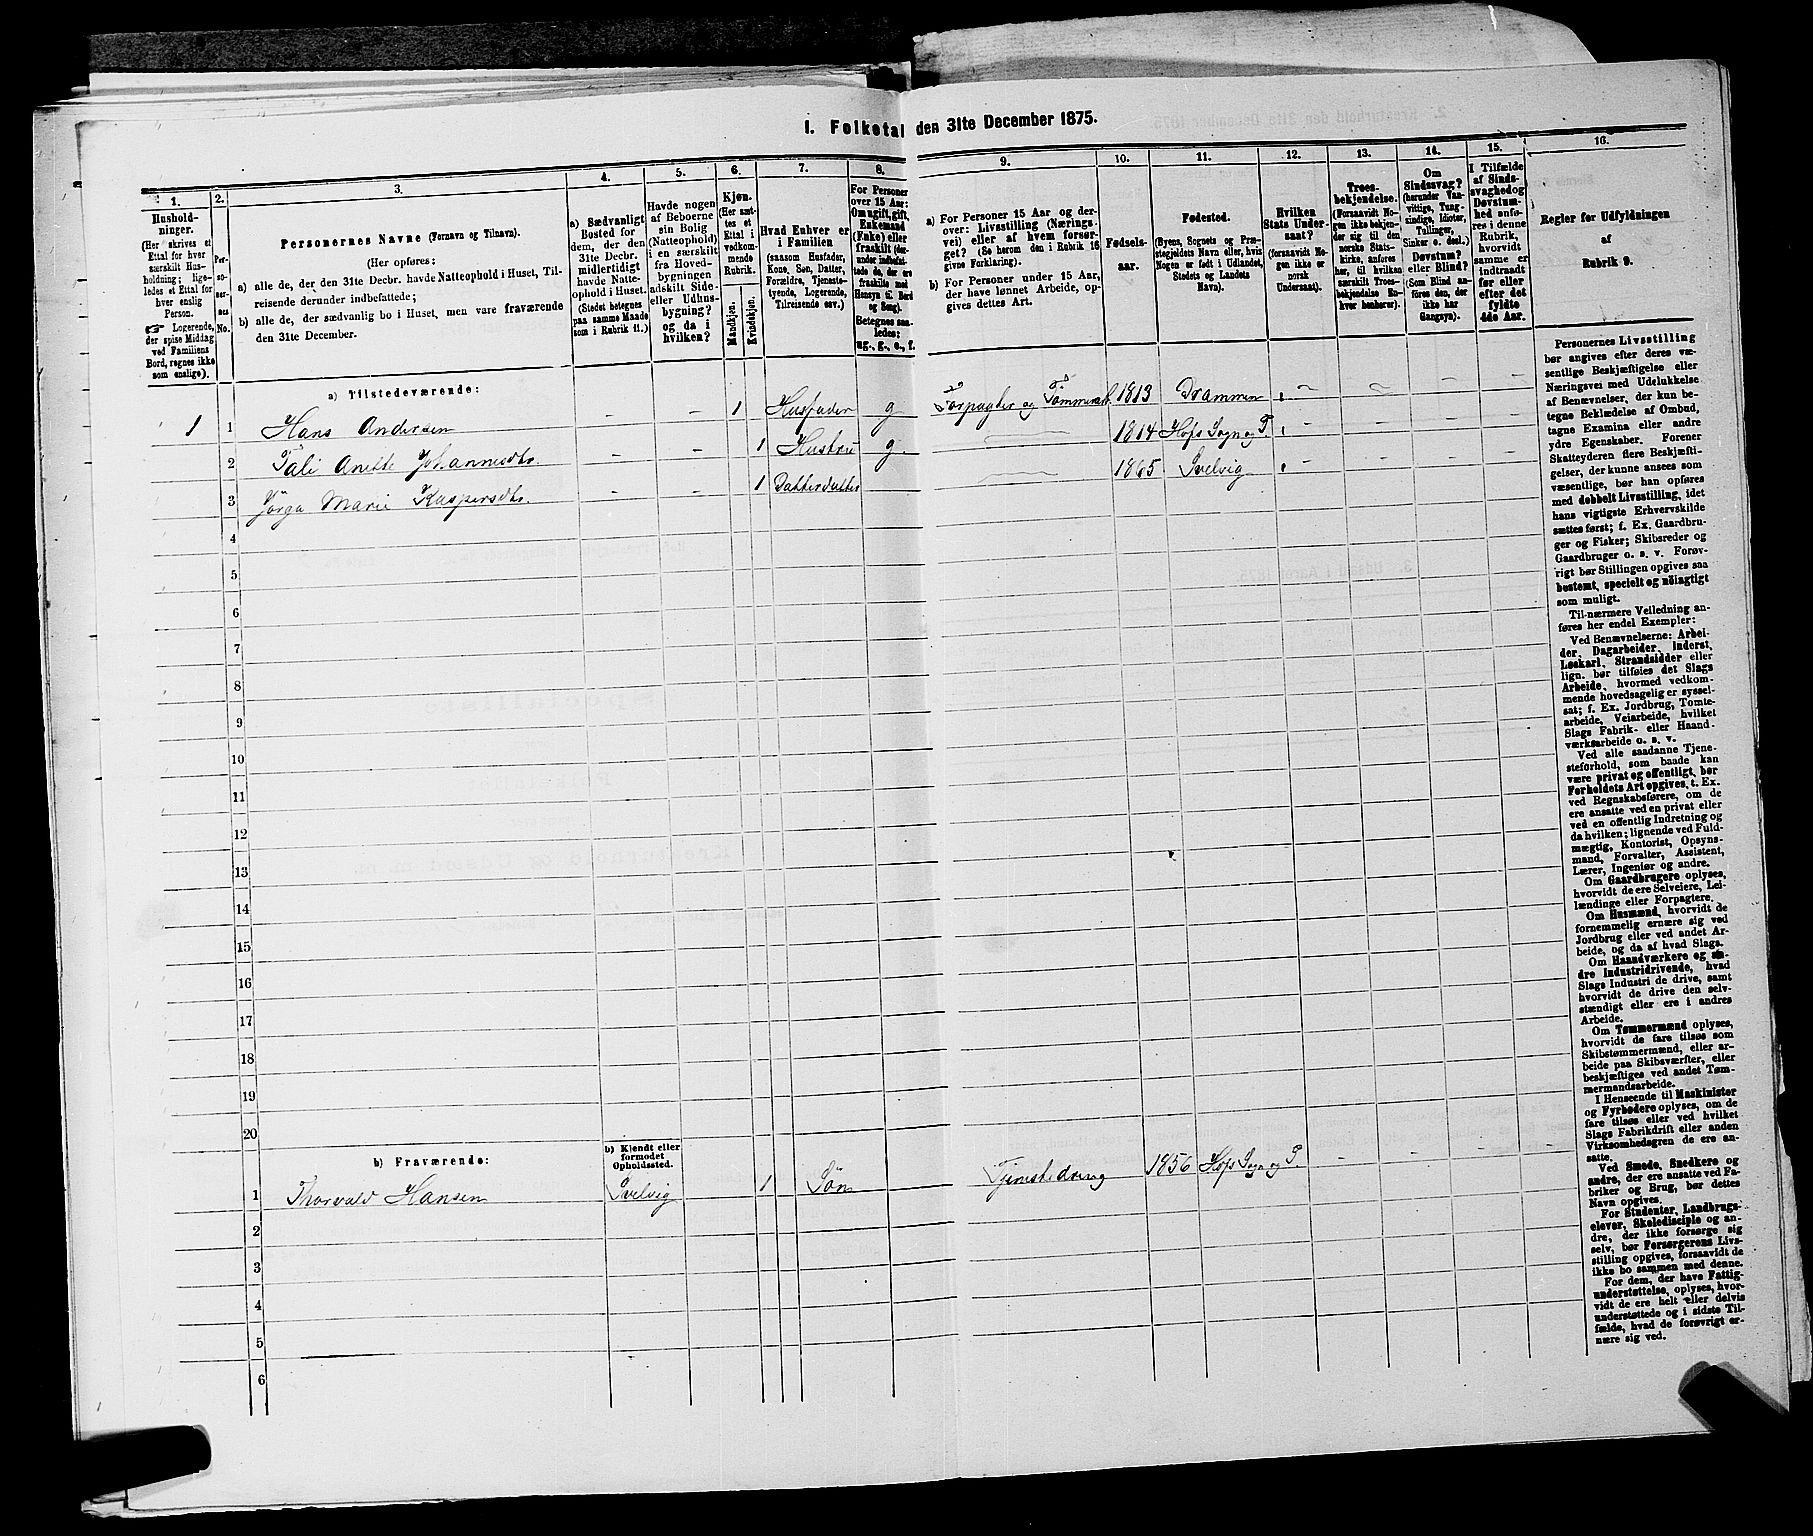 1. Folketal den 31te December 1875.
1.
Hushold-
ninger.
(Her skrives et
Ettal for hver
særskilt Hus-
holdning; lige-
ledes et Ettal for
hver enslig
Person.
Logerende,
der spise Middag
ved Familiens
Bord, regnes ikke
som enslige).
2.
Per-
so-
ner-
nes
No.
3.
Personernes Navne (Fornavn og Tilnavn).
(Her opføres:
a) alle de, der den 31te Decbr. havde Natteophold i Huset, Til-
reisende derunder indbefattede;
b) alle de, der sædvanlig bo i Huset, men vare fraværende
den 31te December.
4.
a) Sædvanligt
Bosted for
dem, der den
31te Decbr.
midlertidigt
havde Natte-
ophold i Huset.
(Stedet betegnes
paa samme Maade
som i Rubrik 11.)
5.
Havde nogen
af Beboerne
sin Bolig
(Natteophold)
i en særskilt
fra Hoved-
bygningen
adskilt Side-
eller Udhus-
bygning?
og da i
hvilken?
6.
Kjøn.
(Her sæt-
tes et
Ettal i
vedkom-
mende
Rubrik.
Mandkjøn.
Kvindekjøn.
7.
Hvad Enhver er
i Familien
(saasom Husfader,
Kone, Søn, Datter,
Forældre, Tjeneste-
tyende, Logerende,
Tilreisende osv.)
8.
For Personer
over 15 Aar:
Om ugift, gift,
Enkemand
(Enke) eller
fraskilt
Betegnes saa-
ledes:
ug., g., e., f.
9.
a) For Personer 15 Aar og der-
over: Livsstilling (Nærings-
vei) eller af hvem forsør-
get? (Se herom den i Rubrik 16
givne Forklaring).
b) For Personer under 15 Aar,
der have lønnet Arbeide, op-
gives dettes Art.
10.
Fødsels-
aar.
11.
Fødested.
(Byens, Sognets og Præ-
stegjeldets Navn eller, hvis
Nogen er født i Udlandet,
Stedets og Landets
Navn).
12.
Hvilken
Stats Under-
saat?
(forsaavidt No-
gen ikke er
norsk
Undersaat).
13.
Troes-
bekjendelse.
(Forsaavidt No-
gen ikke bekjen-
der sig til den
norske Stats-
kirke, anføres
her, til hvilken
særskilt Troes-
bekjendelse En-
hver henhører).
14.
Om
Sindssvag?
(herunder Van-
vittige, Tung-
sindige, Idioter,
Tullinger,
Sinker o. desl.)
Døvstum?
eller Blind?
(Som Blind an-
føres den, der
ikke har
Gangsyn).
15.
I Tilfælde
af Sinds-
svaghed og
Døvstum-
hed anfø-
res i denne
Rubrik,
hvorvidt
samme er
indtraadt
før eller
efter det
fyldte
4de Aar.
16.
Regler for Udfyldningen
af
Rubrik 9.
a) Tilstedeværende:
1 1 Hans Andersen - - 1 Husfader g Forpagter og 1813 Drammen
2 Anette Johannesdtr. - - 1 Hustru g. 1814 Hofs Sogn og P.
3 Marie Kaspersdtr. - - 1 Datterdatter 1865 Svelvig
4
5
6
7
8
9
10
11
12
13
14
15
16
17
18
19
20
b) Fraværende:
b) Kjendt eller
formodet
Opholdssted.
1 Thorvald Hansen Svelvig 1 Søn Tjenestedreng 1856 Hofs Sogn og P - - - -
2
3
4
5
6
Personernes Livsstilling
bør angives efter deres væ-
sentlige Beskjæftigelse eller
Næringsvei med Udelukkelse
af Benævnelser, der kun be-
tegne Beklædelse af Ombud,
tagne Examina eller andre
ydre Egenskaber. Forener
Skatteyderen flere Beskjæfti-
gelser, der kunne ansees som
væsentlige, bør han opføres
med dobbelt Livsstilling, idet
hans vigtigste Erhvervskilde
sættes først; f. Ex. Gaardbru-
ger og Fisker; Skibsreder og
Gaardbruger o. s. v. Forøv-
rigt bør Stillingen opgives saa
bestemt, specielt og nøiagtigt
som muligt.
Til nærmere Veiledning an-
føres her endel Exempler:
Ved Benævnelserne: Arbei-
der, Dagarbeider, Inderst,
Løskarl, Strandsidder eller
lign. bør tilføies det Slags
Arbeide, hvormed vedkom-
mende hovedsagelig er syssel-
sat; f. Ex. Jordbrug, Tomte-
arbeide, Veiarbeide, hvilket
Slags Fabrik- eller Haand-
værksarbeide o. s. v.
Ved alle saadanne Tjene-
steforhold, som baade kan
være privat og offentligt, bør
Forholdets Art opgives, f. Ex.
ved Regnskabsførere, om de
ere ansatte ved en privat eller
ved en offentlig Indretning og
da hvilken; lignende ved Fuld-
mægtig, Kontorist, Opsyns-
mand, Forvalter, Assistent,
Lærer, Ingeniør og andre.
Om Gaardbrugere oplyses,
hvorvidt de ere Selveiere, Lei-
lændinge eller Forpagtere.
Om Husmænd, hvorvidt de
fornemmelig ernære sig ved
Jordbrug eller ved andet Ar-
beide, og da af hvad Slags.
Om Haandværkere og an-
dre Industridrivende, hvad
Slags Industri de drive, samt
hvorvidt de drive den selv-
stændigt eller ere i andres
Arbeide.
Om Tømmermænd oplyses,
hvorvidt de fare tilsøs som
Skibstømmermænd, eller ar-
beide paa Skibsværfter, eller
beskjæftiges ved andet Tøm-
mermandsarbeide.
I Henseende til Maskinister
og Fyrbødere oplyses, om de
fare tilsøs eller ved hvilket
Slags Fabrikdrift eller anden
Virksomhedsgren de ere an-
satte.
Ved Smede, Snedkere og
andre, der ere ansatte ved Fa-
briker og Brug, bør dettes
Navn opgives.
For Studenter, Landbrugs-
elever, Skoledisciple og an-
dre, der ikke forsørge sig
selv, bør Forsørgerens Livs-
stilling opgives, forsaavidt de
ikke bo sammen med denne.
For dem, der have Fattig-
understøttelse, oplyses, hvor-
vidt de ere helt eller delvis
understøttede og i sidste Til-
fælde, hvad de forøvrigt er-
nære sig ved.